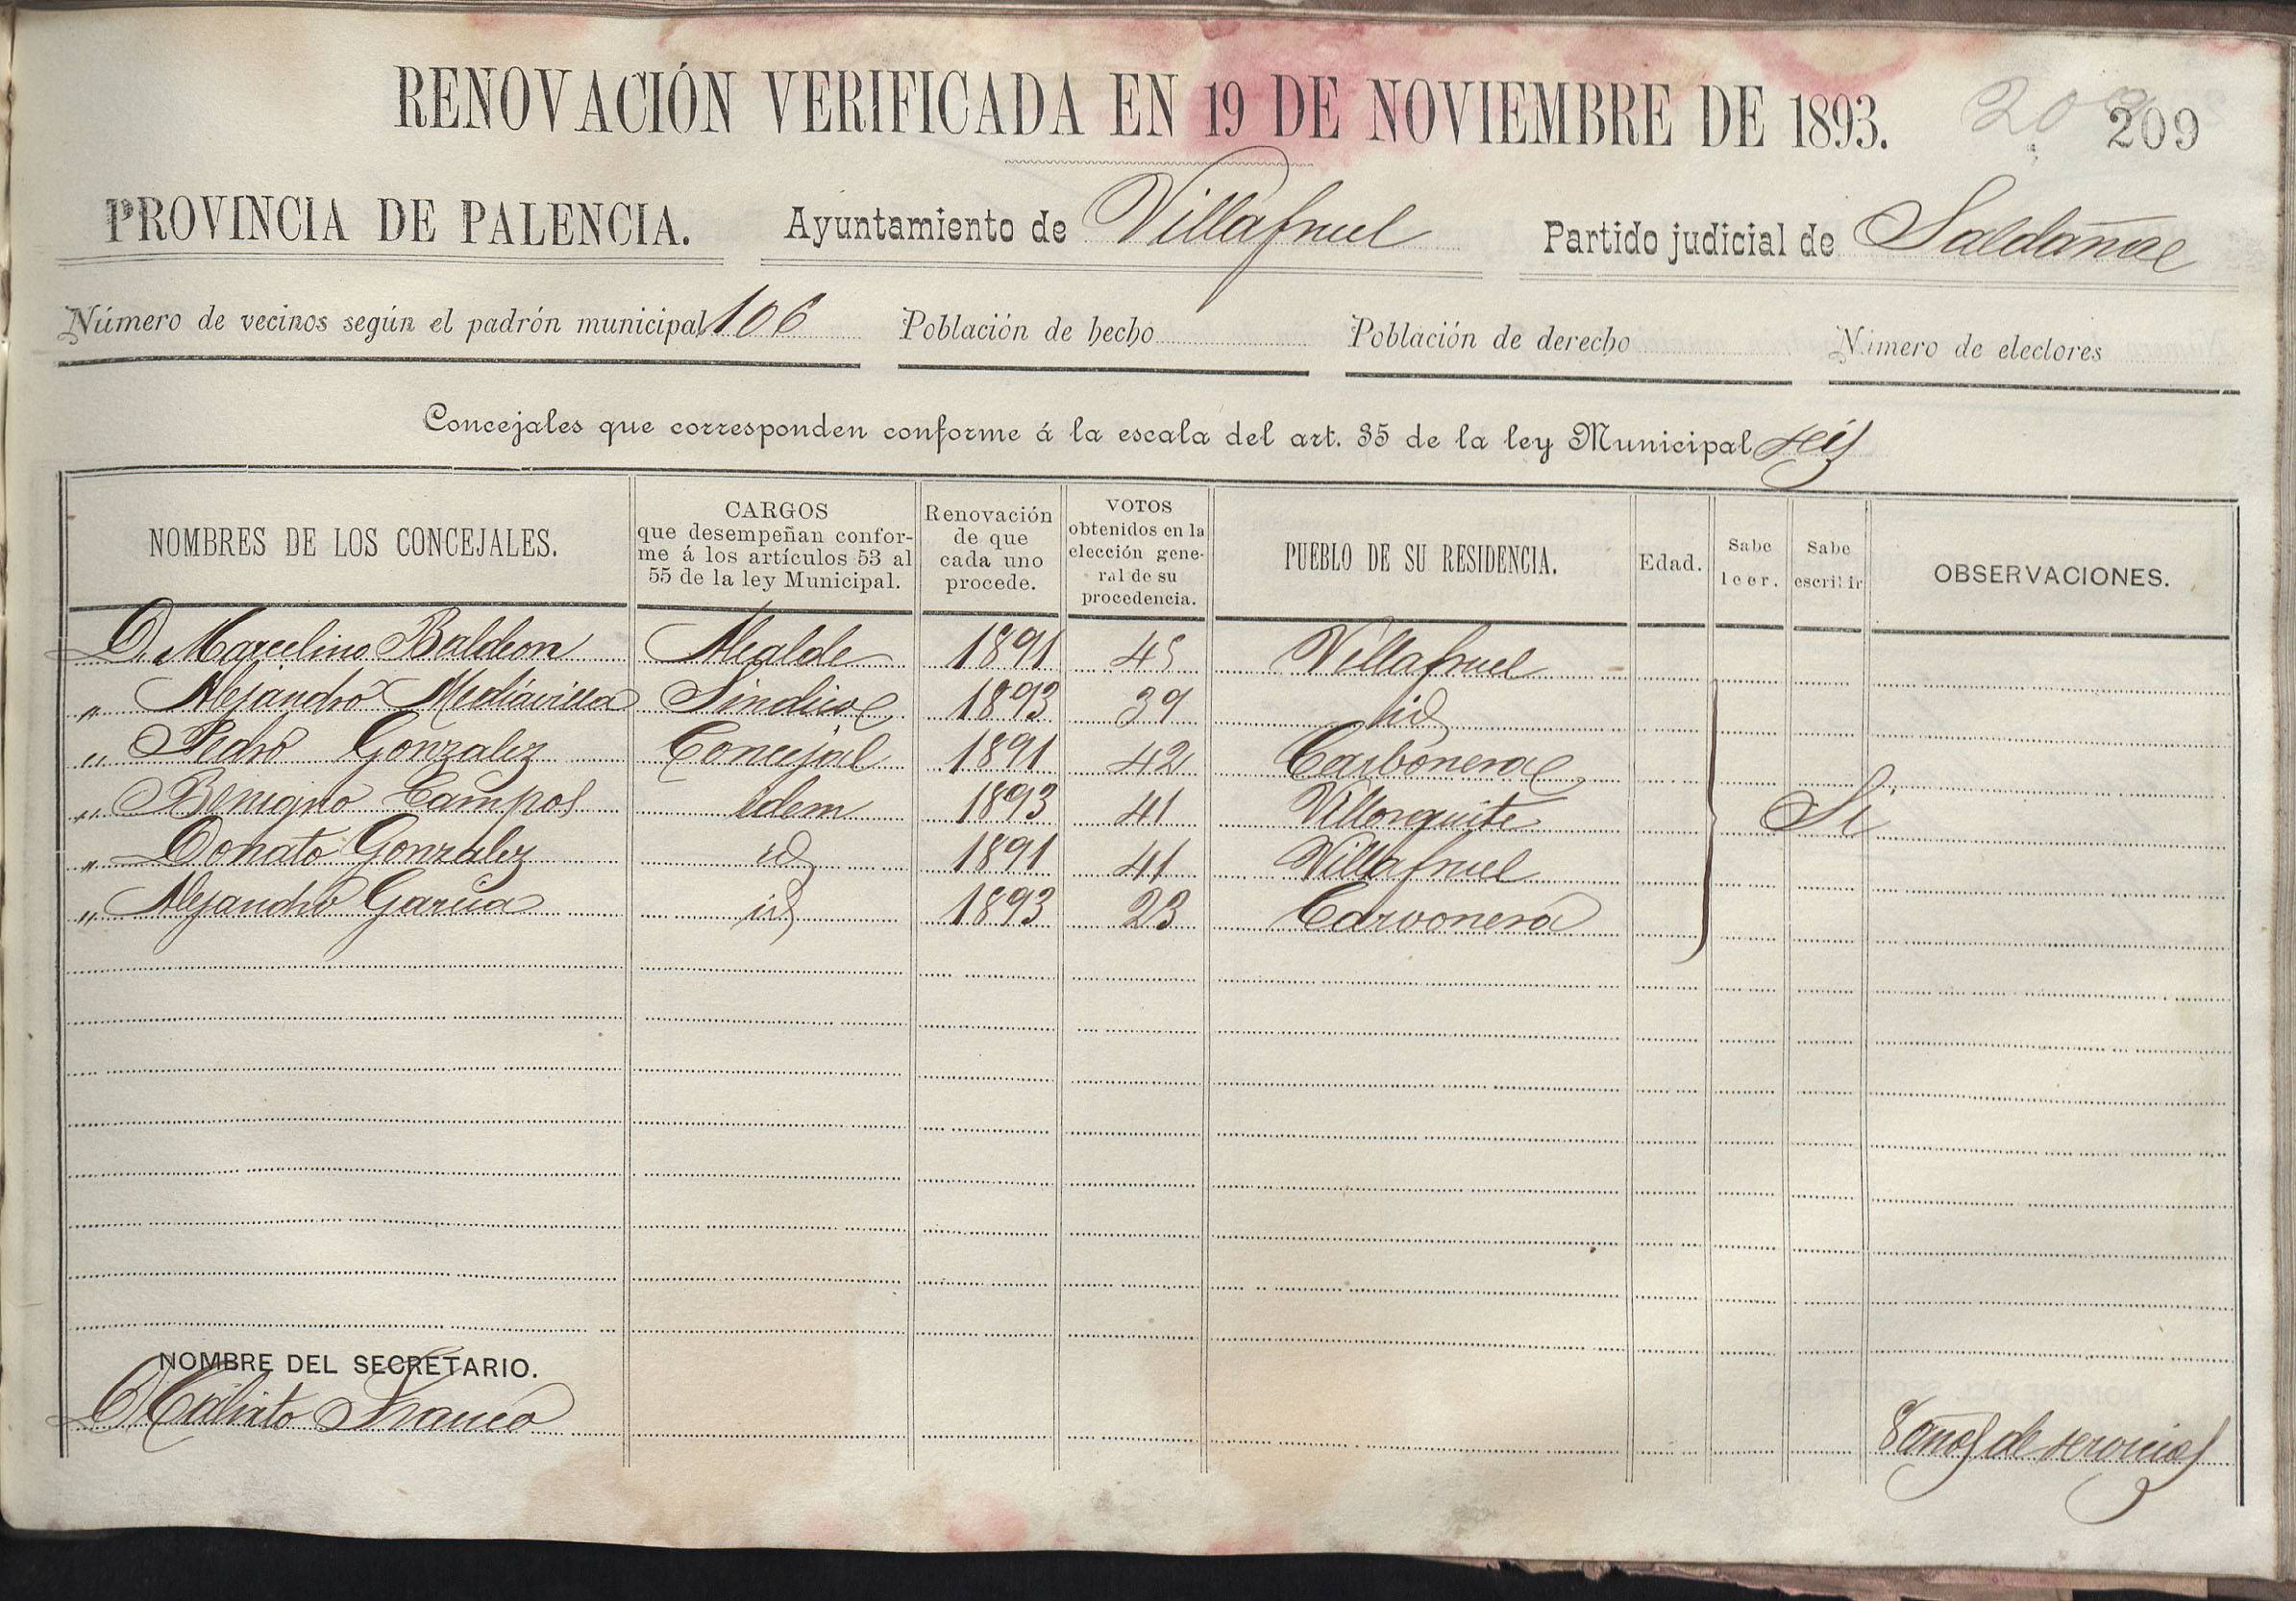 RENOVACIÓN VERIFICADA EN 19 DE NOVIEMBRE DE 1893. 209 209
PROVINCIA DE PALENCIA. Ayuntamiento de Villafruel Partido judicial de Saldaña
Número de vecinos según el padrón municipal 106 Población de hecho Población de derecho Número de electores
Concejales que corresponden conforme á la escala del art. 35 de la ley Municipal seis
NOMBRES DE LOS CONCEJALES. CARGOS que desempeñan conforme á los artículos 53 al 55 de la ley Municipal. Renovación de que cada uno procede. VOTOS obtenidos en la elección general de su procedencia. PUEBLO DE SU RESIDENCIA. Edad. Sabe leer. Sabe escribir OBSERVACIONES.
D. Marcelino Baldeon Alcalde 1891 45 Villafruel
" Alejandro Mediavilla Sindico 1893 39 id
" Pedro Gonzalez Concejal 1891 42 Carbonera
" Benigno Campos idem 1893 41 Villorquite Si
" Donato Gonzalez id 1891 41 Villafruel
" Alejandro Garcia id 1893 23 Carvonera
NOMBRE DEL SECRETARIO.
D. Calixto Franco 8 años de servicios